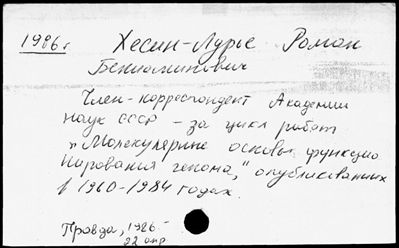 1986 г Хесин-Лурье Роман
Бениаминович
Член-корреспондент Академии
наук СССР - за цикл работ
"Молекулярные основы функцио
нирования генома," опубликованных
в 1960-1984 годах.
Правда, 1986 -
22 апр